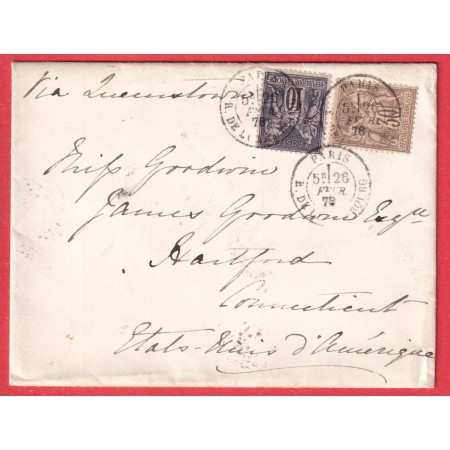 Via Queenstown
Miss Goodwin
James Goodwin Esqre
Hartford
Connecticut
Etats-Unis d'Amérique
PARIS
5E 26
FEVR
78
PARIS
5E 26
FEVR
78
PARIS
5E 26
FEVR
78
10